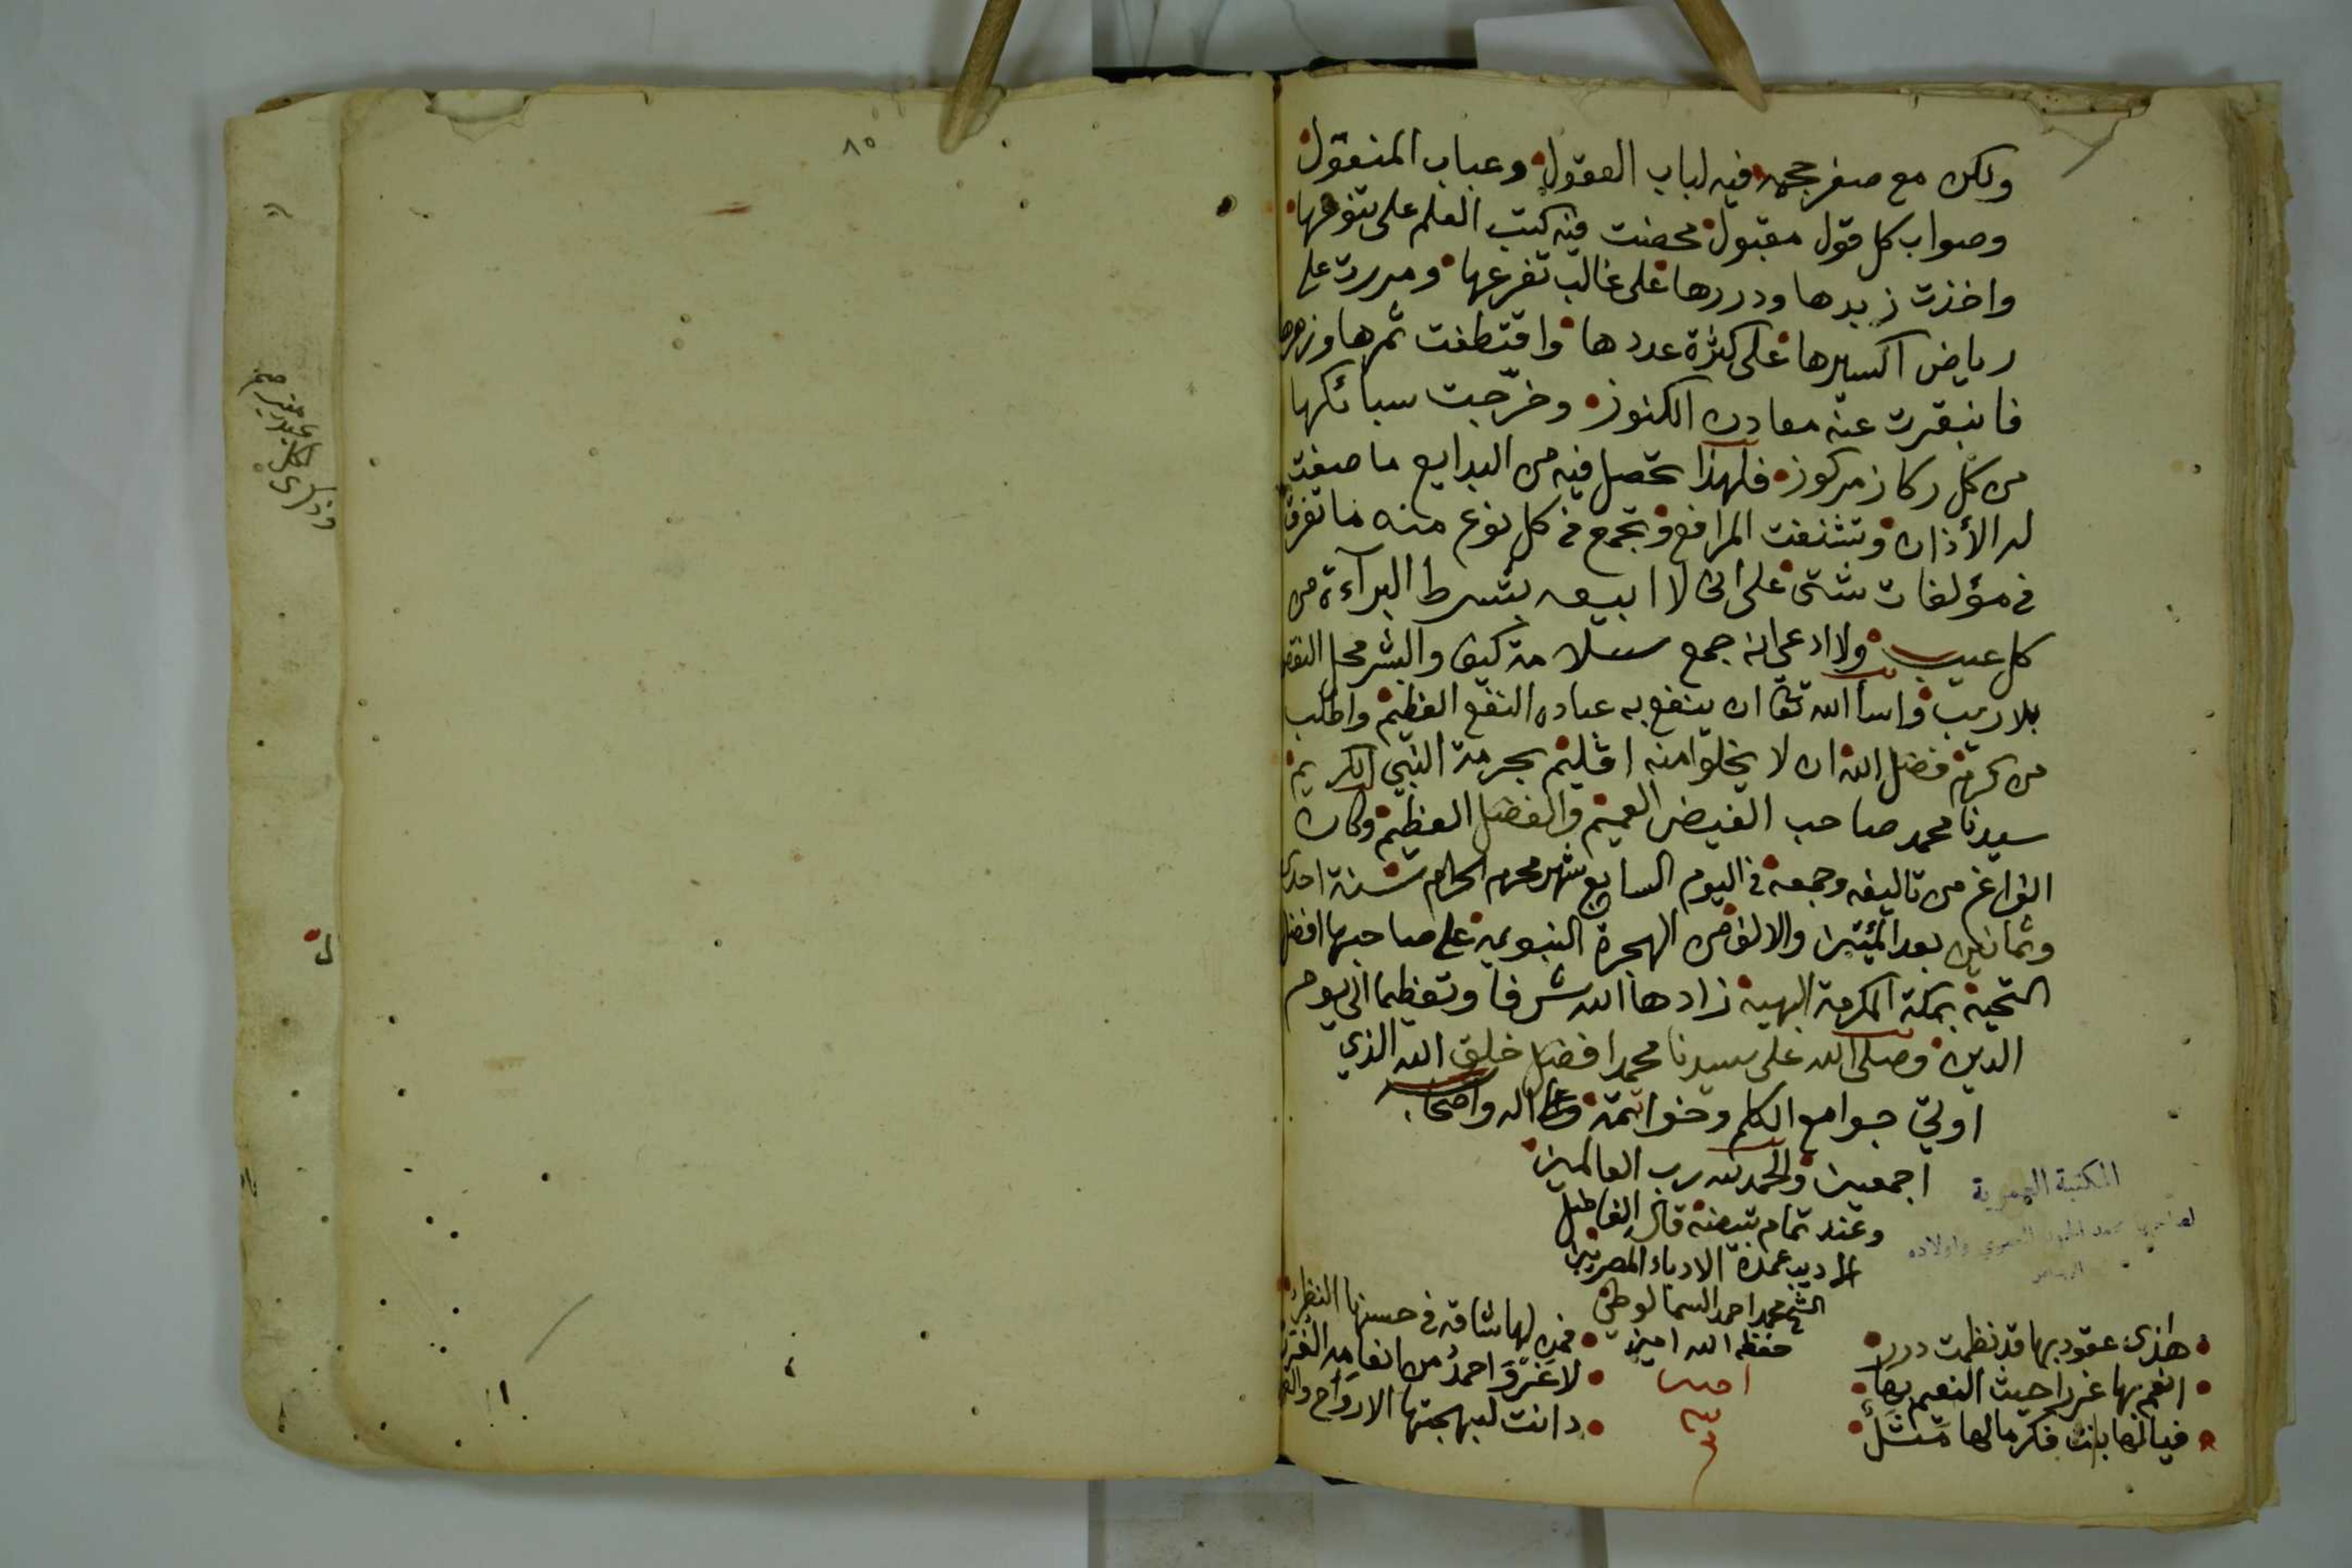 ولكن مع صغر حجمه فيه لباب العقول وعباب المنقول
وصواب كل قول مقبول محضت فيه كتب العلم على تنوعها
واخذت زبدها ودررها على غالب تفرعها ومررت على
رياض اكسيرها على كثرة عددها واقتطفت ثمرها وزهرها
فانبقرت عنه معادن الكنوز وخرّجت سبائكها
من كل ركاز مركوز فلهذا تحصل فيه من البدايع ما صغت
له الأذان وتشنفت المرافع وتجمع في كل نوع منه ما تفرق
في مؤلفات شتى على اني لا ابيعه بشرط البرآءة من
كل عيب ولا ادعي انه جمع سلامة كيف والبشر محل النقص
بلا ريب واسأ الله تعا ان ينفع به عباده النفع العظيم واطلب
من كرم فضل الله ان لا يخلوا منه اقليم بحرمة النبي الكريم
سيدنا محمد صاحب الفيض العميم والفضل العظيم وكان
الفراغ من تاليفه وجمعه في اليوم السابع شهر محرم الحرام سنة احدى
وثمانين بعد المئتين والالف من الهجرة النبويه على صاحبها افضل
التحية بمكة المكرمة البهية زادها الله شرفا وتعظيما الى يوم
الدين وصلى الله على سيدنا محمد افضل خلق الله الذي
اوتي جوامع الكلم وخواتمة وعلى اله واصحابه
اجمعين والحمد لله رب العالمين
وعند تمام تبيضه قال الفاضل
الاديب عمدة الادباء المصريين
الشيخ محمد احمد السمالوطي
حفظه الله امين
امين
هذى عقود بها قد نظمت درر فمن لها شاقه في حسنها النظر
انعم بها غررا حيث النعيم بها لا غَرْوَ احمدُ من انعامِه الغرر
فيا لها بانت فكر مالها مَثَلٌ دانت لبهجتها الارواح
المكتبة
٨٥